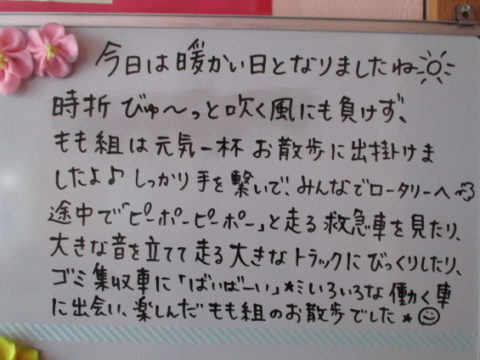 今日は暖かい日となりましたね☀
時折びゅ〜っと吹く風にも負けず、
もも組は元気一杯お散歩に出掛けま
したよ♪しっかり手を繋いで、みんなでロータリーへ
途中で「ピーポーピーポー」と走る救急車を見たり、
大きな音を立てて走る大きなトラックにびっくりしたり、
ゴミ集収車に「ばいばーい」★ミいろいろな働く車
に出会い、楽しんだもも組のお散歩でした★☺